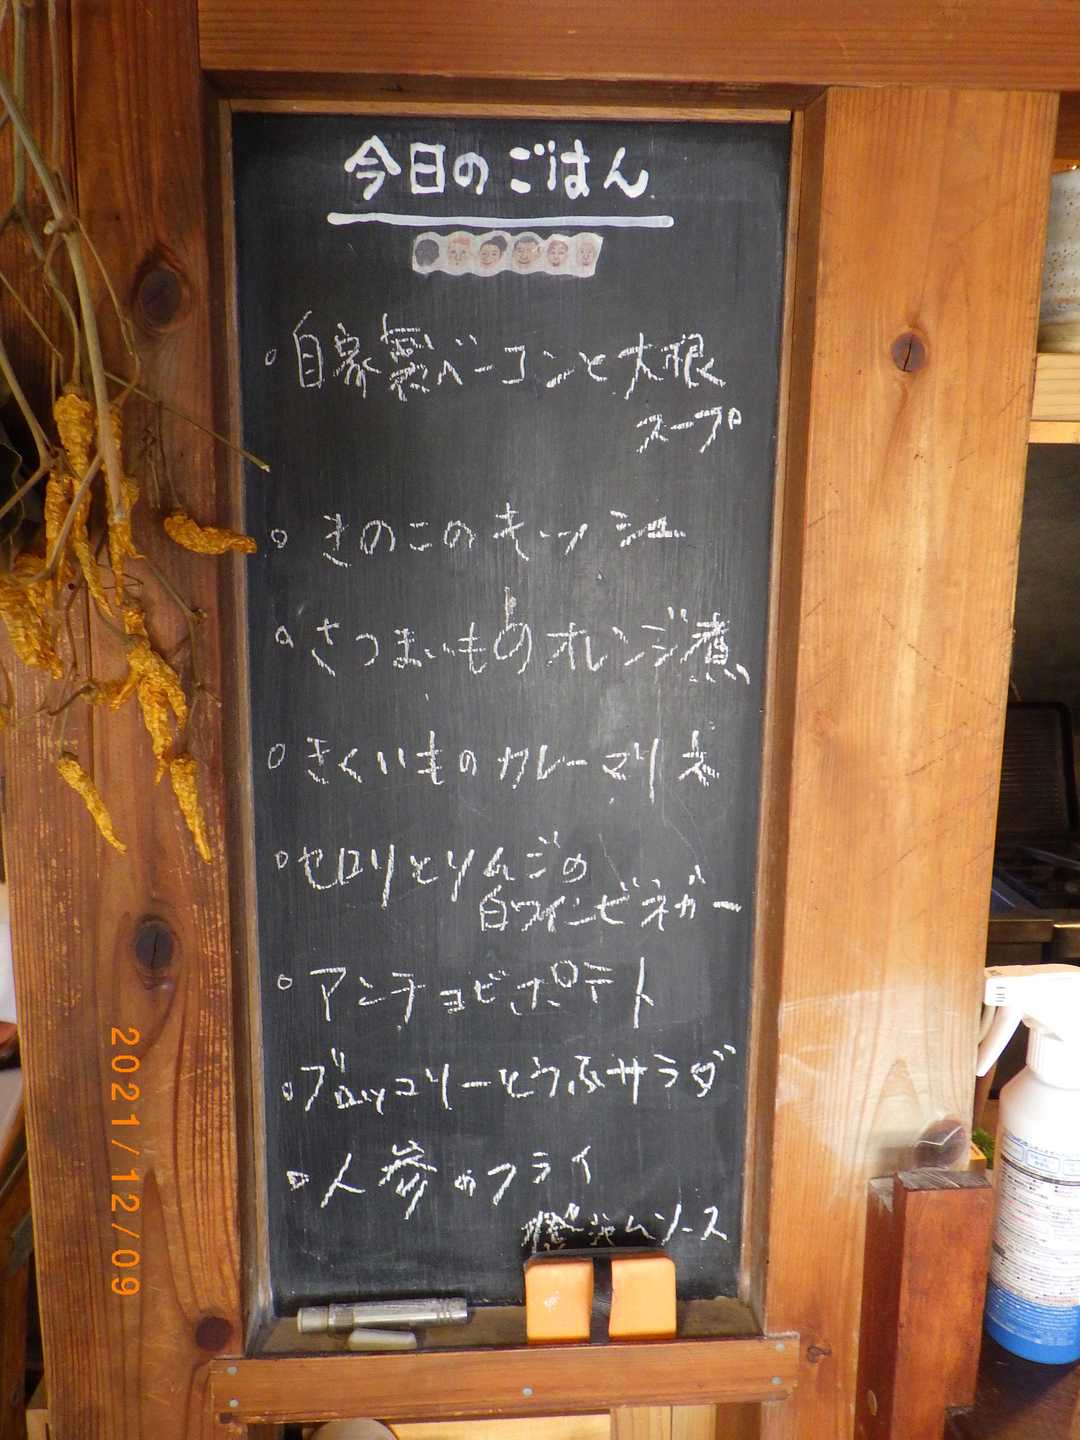 今日のごはん
。自家製ベーコンと大根
スープ
。きのこのキッシュ
。さつまいものオレンジ煮
。きくいものカレーマリネ
。セロリとりんごの
白ワインビネガー
。アンチョビポテト
。ブロッコリーとうふサラダ
。人参のフライ
ソース
2021/12/09